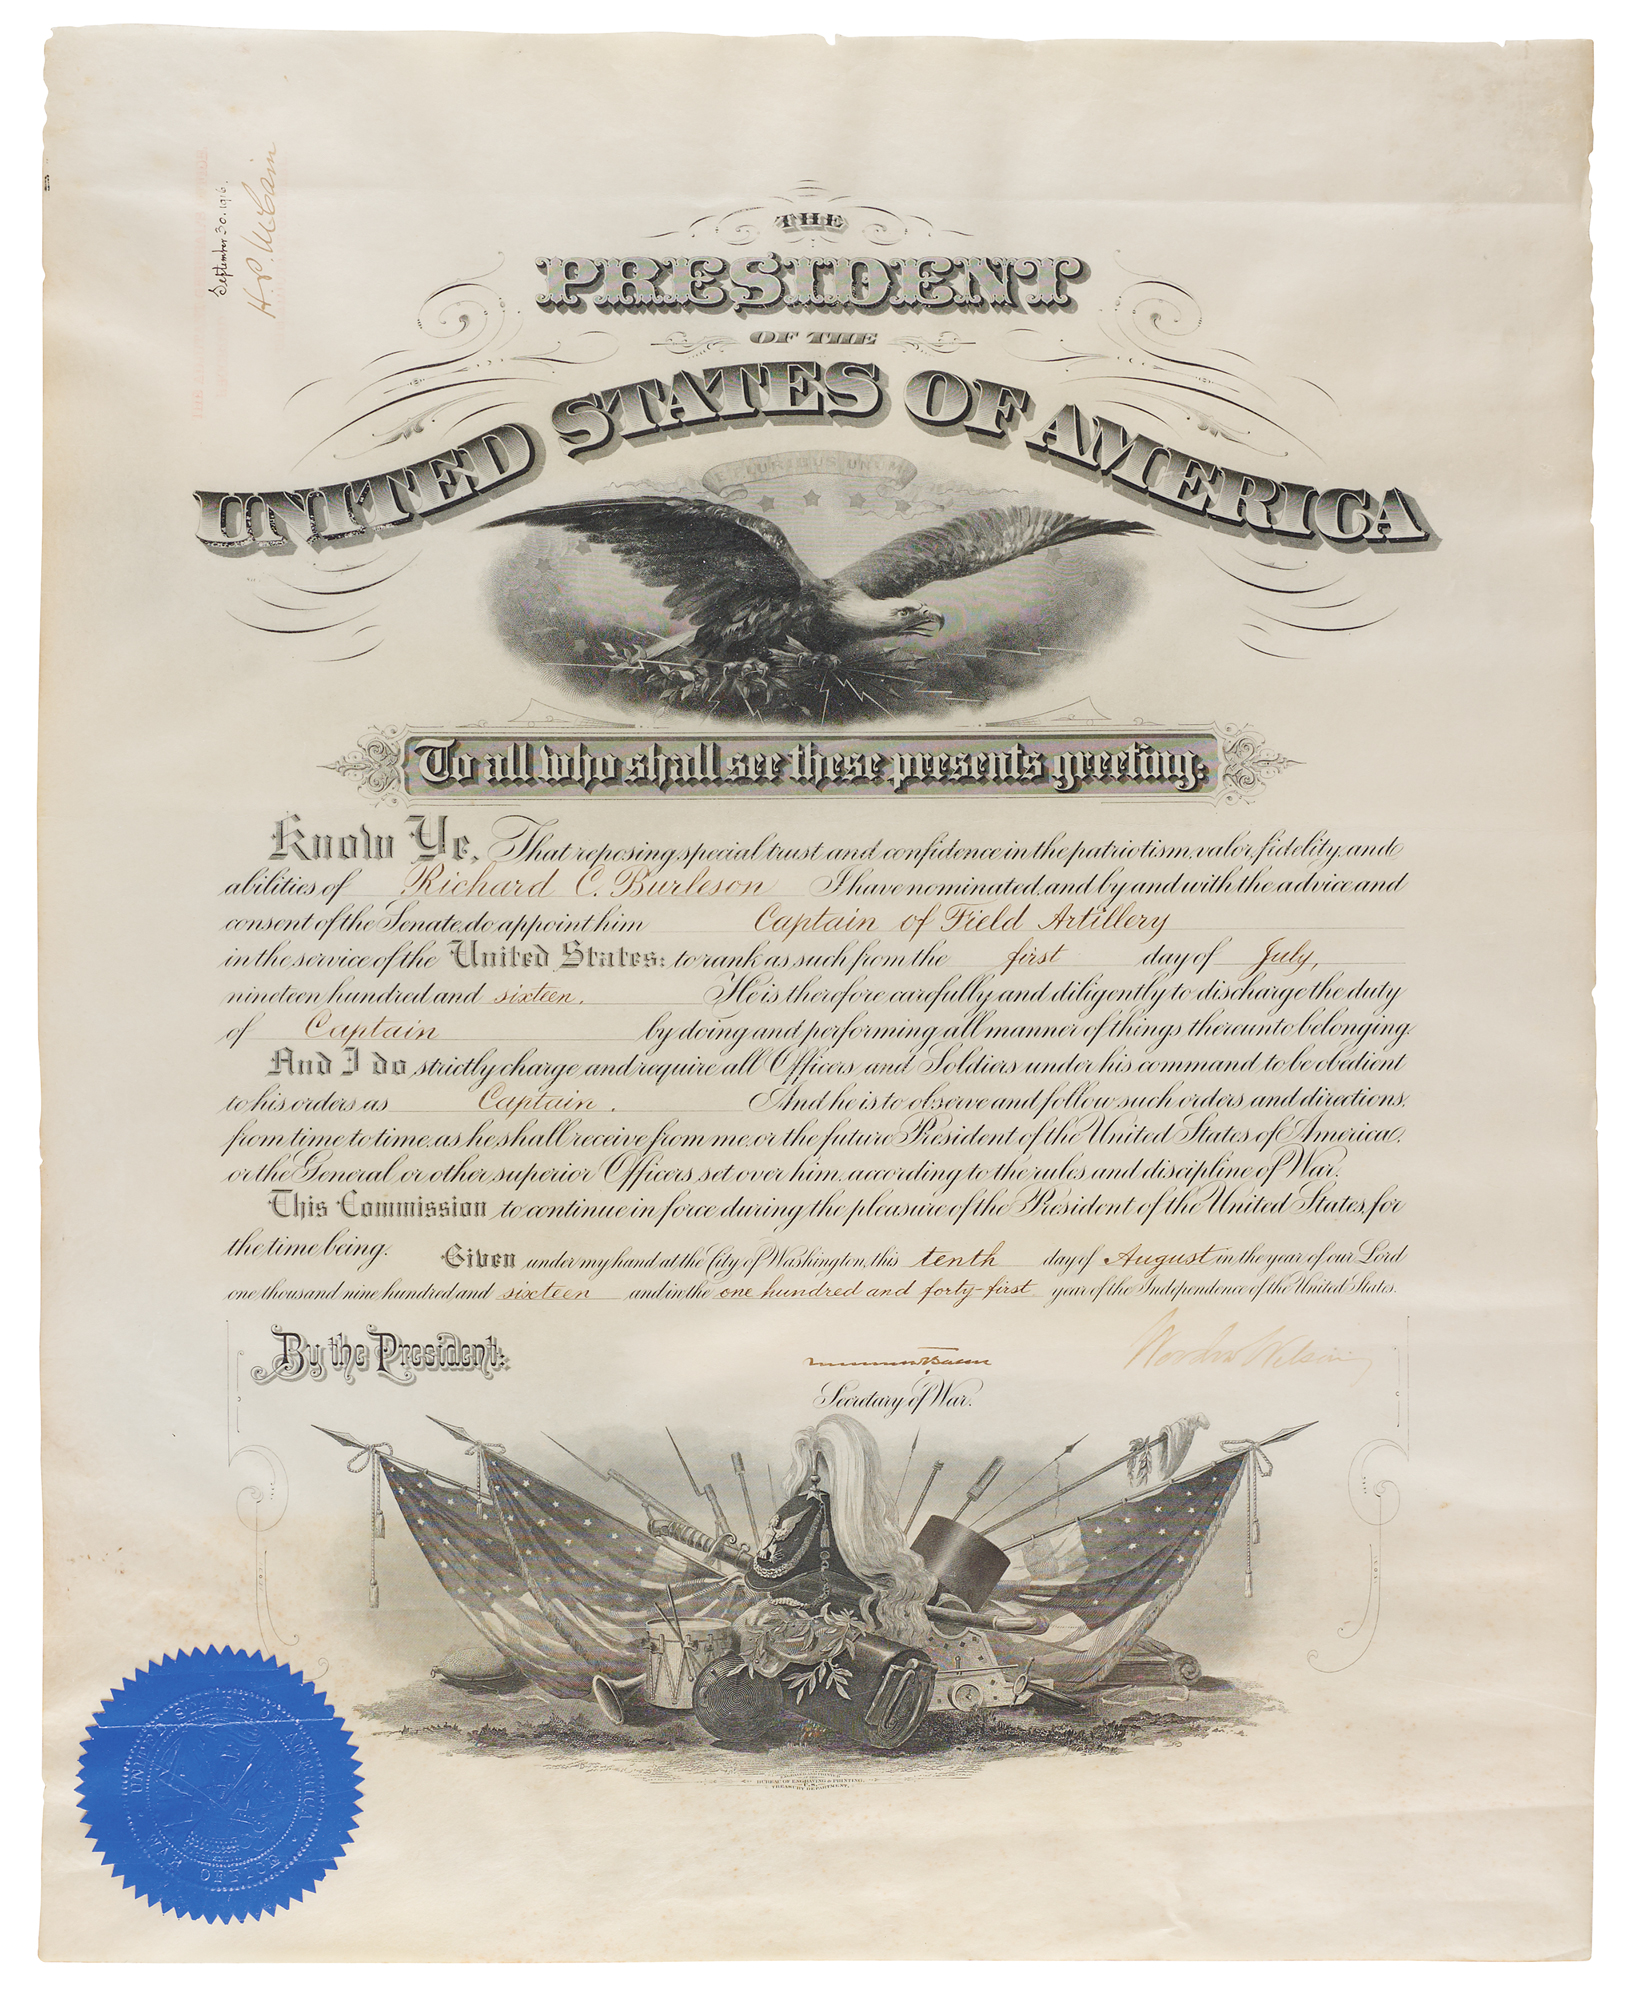 September 30. 1916.
H. P. McCain
THE
PRESIDENT
OF THE
UNITED STATES OF AMERICA
E PLURIBUS UNUM
To all who shall see these presents greeting:
Know Ye, That reposing special trust and confidence in the patriotism, valor, fidelity, and
abilities of Richard C. Burleson I have nominated, and by and with the advice and
consent of the Senate, do appoint him Captain of Field Artillery
in the service of the United States: to rank as such from the first day of July,
nineteen hundred and sixteen. He is therefore carefully and diligently to discharge the duty
of Captain by doing and performing all manner of things thereunto belonging.
And I do strictly charge and require all Officers and Soldiers under his command to be obedient
to his orders as Captain. And he is to observe and follow such orders and directions,
from time to time, as he shall receive from me, or the future President of the United States of America,
or the General or other superior Officers set over him, according to the rules and discipline of War.
This Commission to continue in force during the pleasure of the President of the United States, for
the time being. Given under my hand at the City of Washington, this tenth day of August in the year of our Lord
one thousand nine hundred and sixteen and in the one hundred and forty-first year of the Independence of the United States.
By the President:
Woodrow Wilson
Secretary of War.
BUREAU OF ENGRAVING & PRINTING.
TREASURY DEPARTMENT.
UNITED STATES OF AMERICA
WAR OFFICE